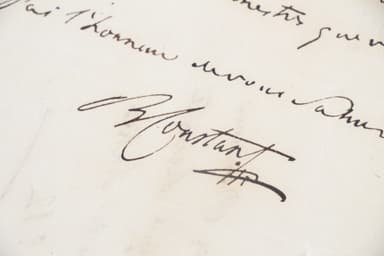 que v
j'ai l'honneur de vous saluer
B Constant